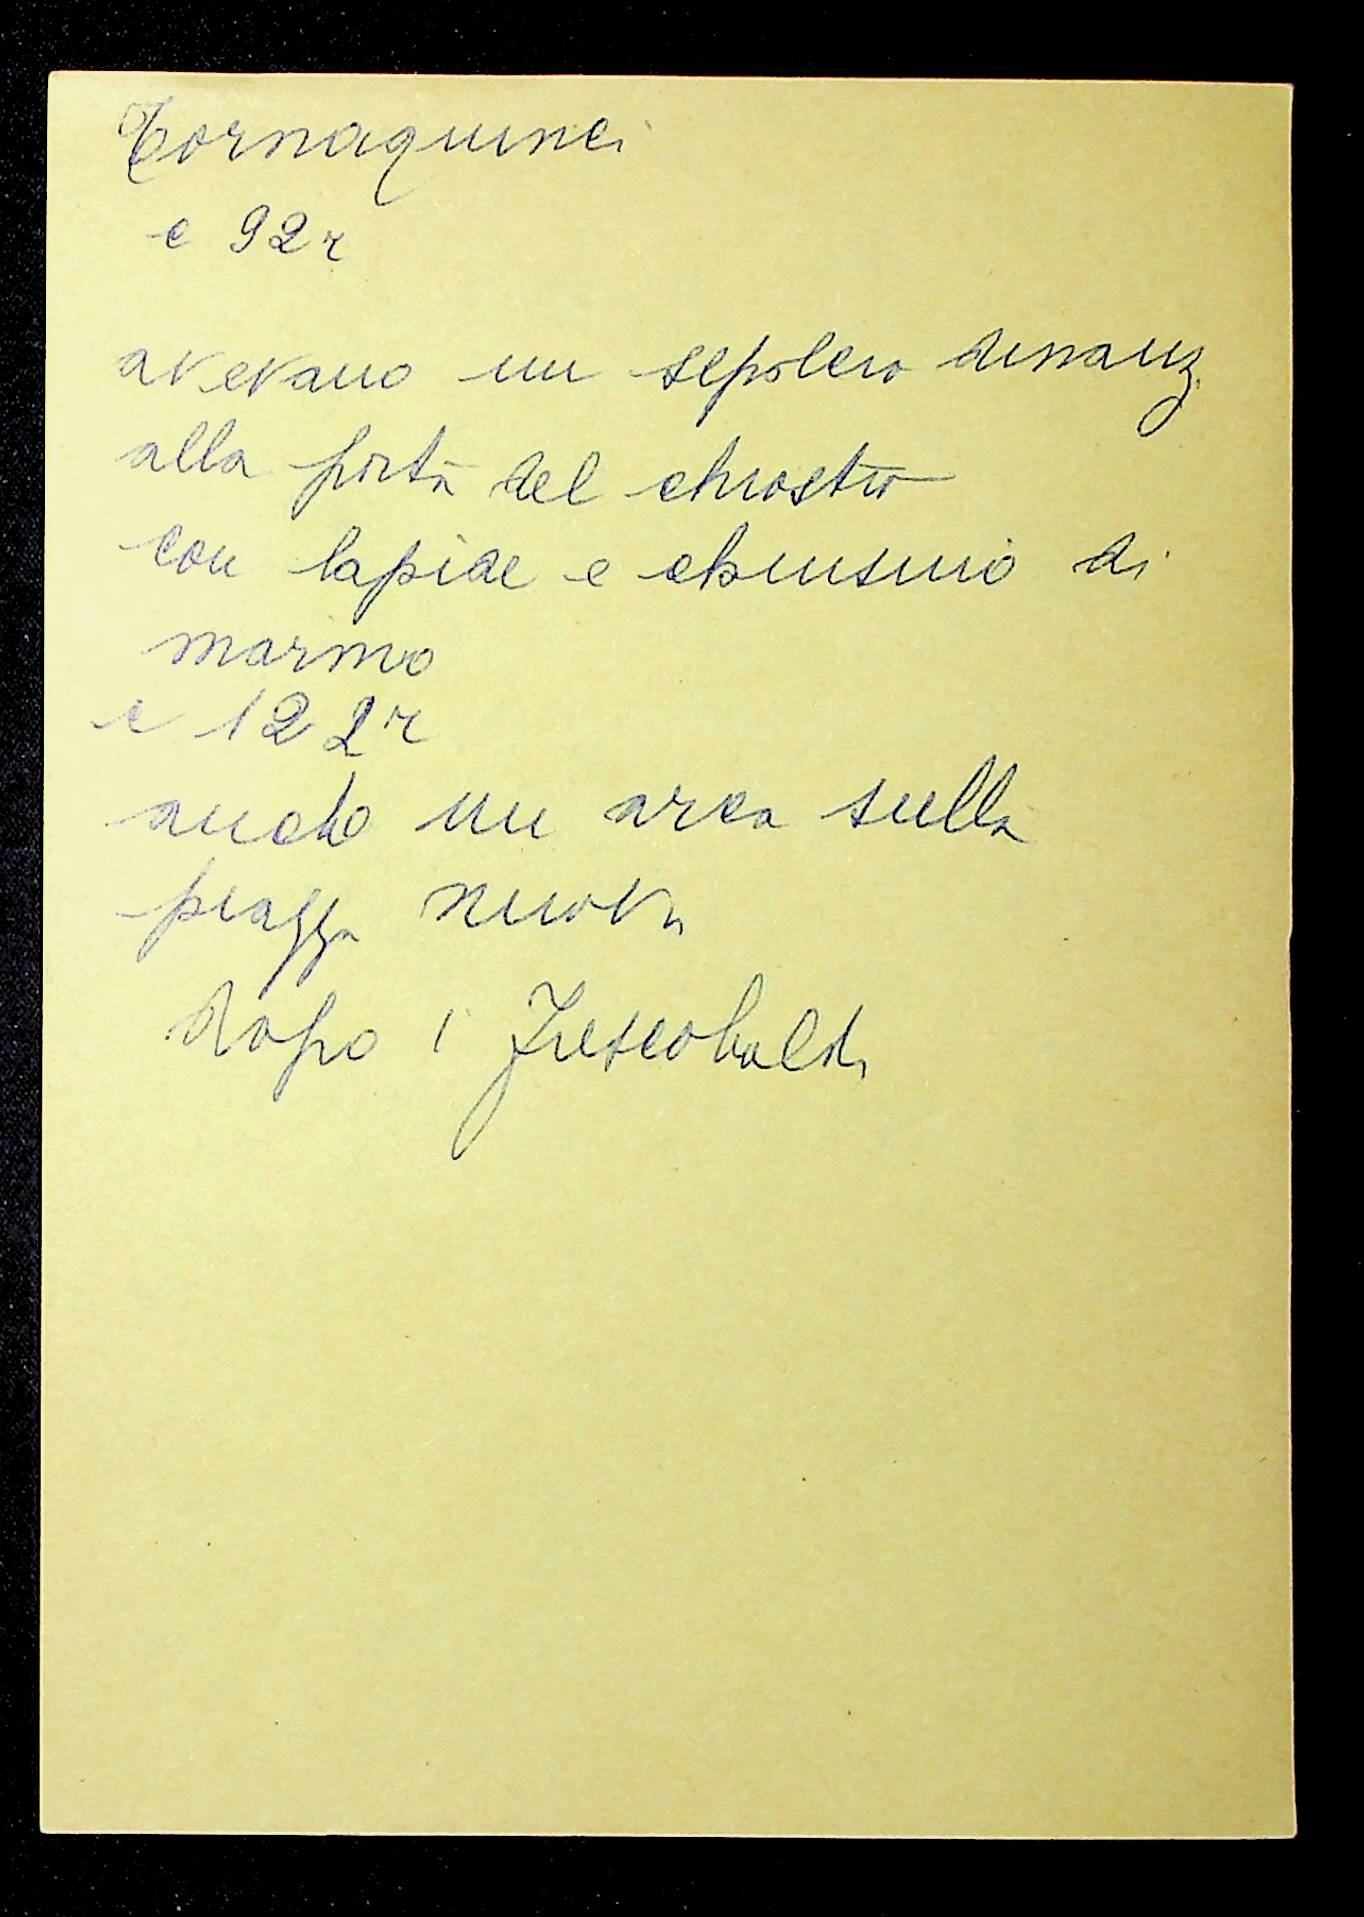 Tornaquinci
c 92r
avevano un sepolcro dinanzi
alla porta del chiostro
con lapide e chiusino di
marmo
c 122r
anche un arca sulla
piazza nuova
dopo i Frescobaldi